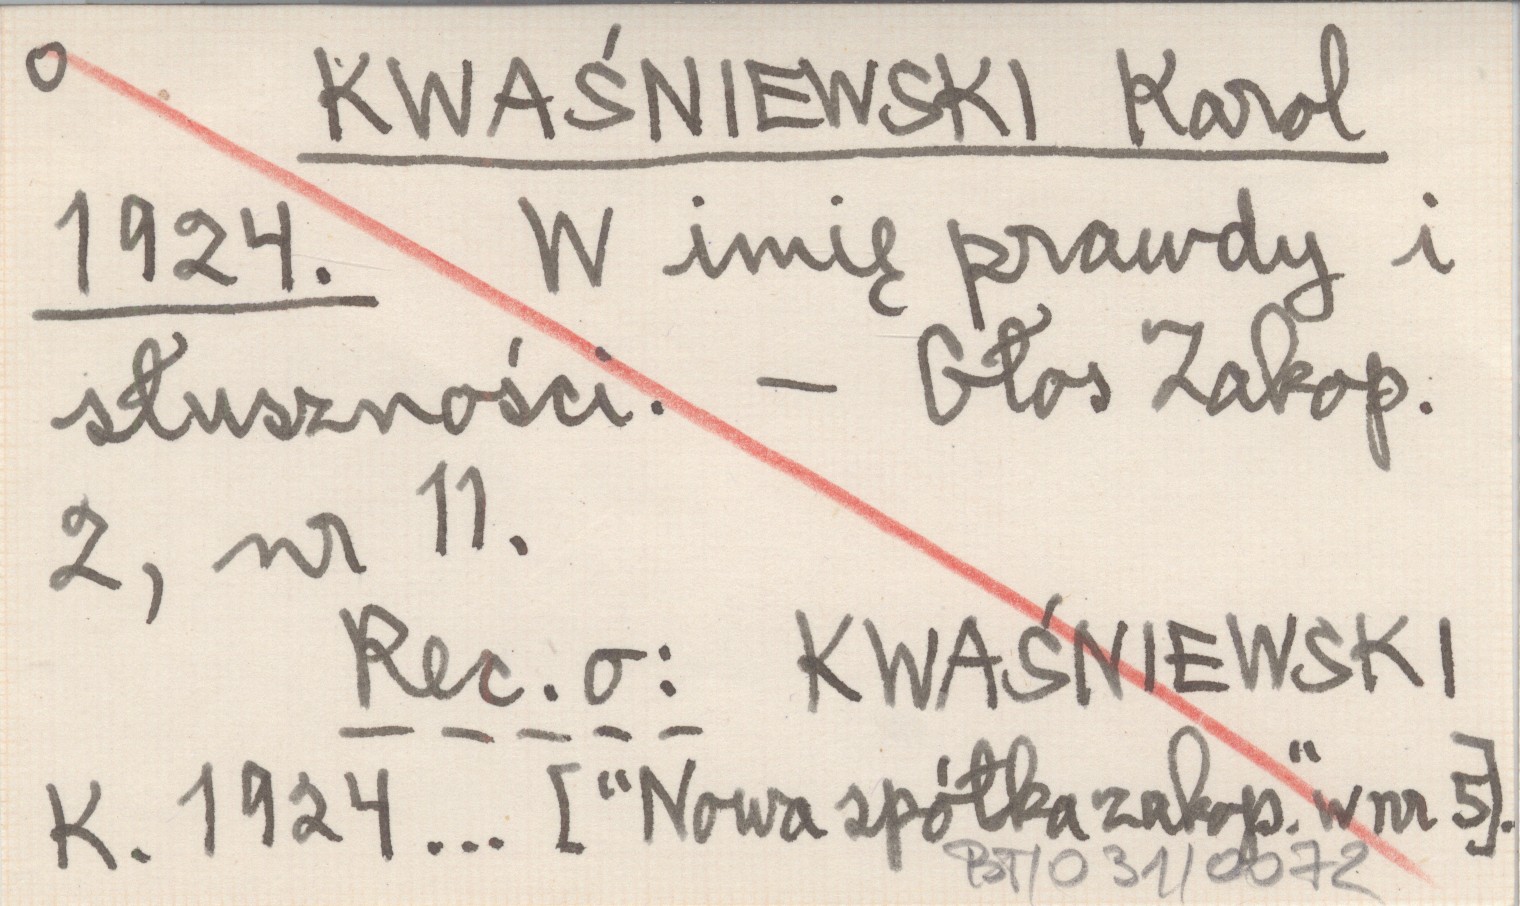 o KWAŚNIEWSKI Karol
1924. W imię prawdy i
słuszności. — Głos Zakop.
2, nr 11.
Rec. o: KWAŚNIEWSKI
K. 1924... ["Nowa spółka zakop." w nr 5].
BT/031/0072